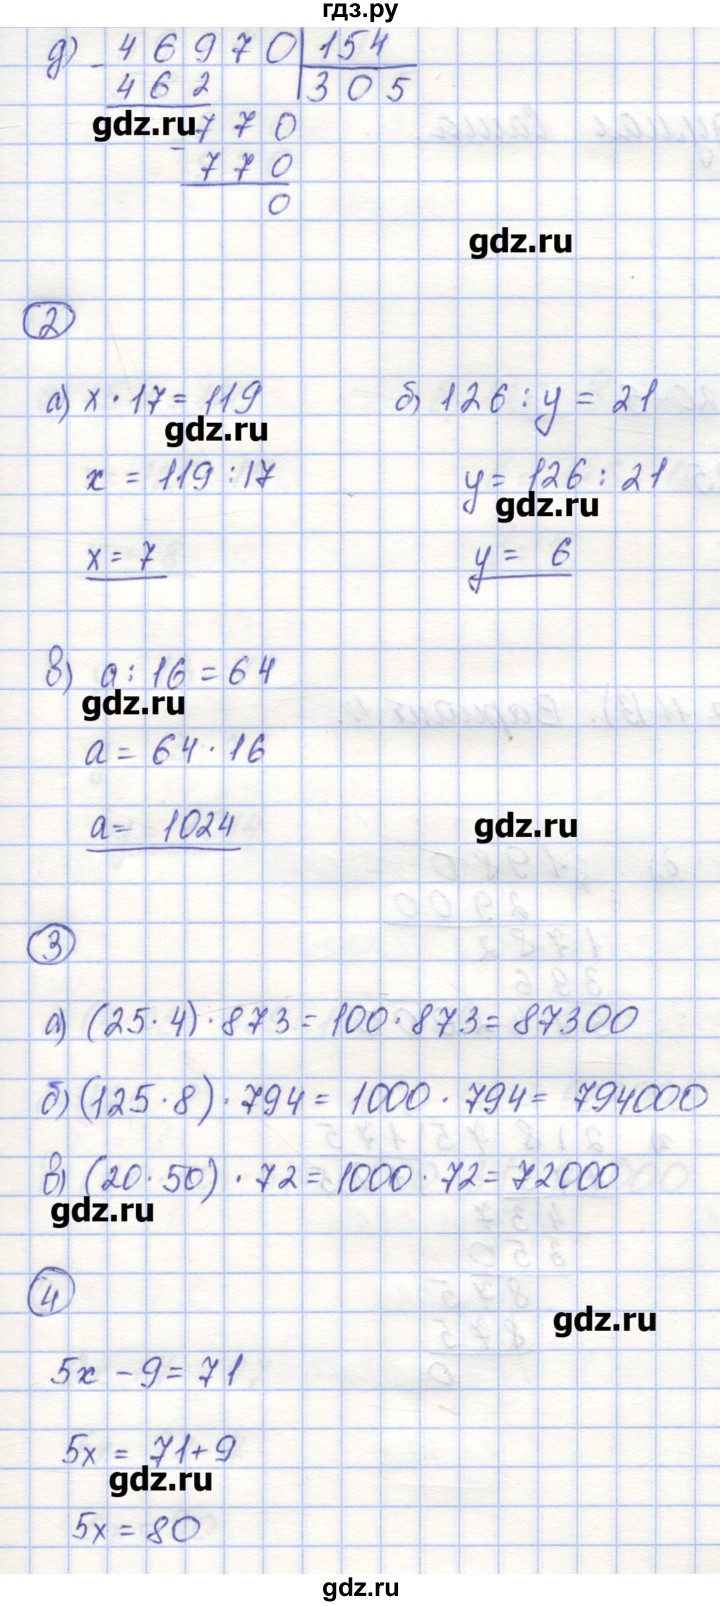 гдз.ру
д) 46970 | 154
- 462 | 305
gdz.ru
770
- 770
0
gdz.ru
2
а) x · 17 = 119
б) 126 : y = 21
gdz.ru
x = 119 : 17
y = 126 : 21
gdz.ru
x = 7
y = 6
в) a : 16 = 64
gdz.ru
a = 64 · 16
a = 1024
gdz.ru
3
а) (25 · 4) · 873 = 100 · 873 = 87300
б) (125 · 8) · 794 = 1000 · 794 = 794000
в) (20 · 50) · 72 = 1000 · 72 = 72000
gdz.ru
4
gdz.ru
5x - 9 = 71
5x = 71 + 9
gdz.ru
5x = 80
gdz.ru